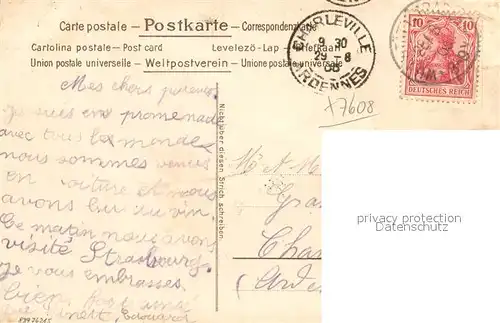 Carte postale - Postkarte - Correspondenzkarte
Cartolina postale - Post card Levelező-Lap - Briefkaart
Union postale universelle - Weltpostverein - Unione postale universale
CHARLEVILLE
9 30
29
08
ARDENNES
10 10
DEUTSCHES REICH
X7608
Mes chers parents
je suis en promenade
avec tous le monde
nous sommes venus
en voiture et nous
avons bu du vin.
Ce matin nous avons
visité Strasbourg.
je vous embrasses
bien fort
Edouard
Nicht über diesen Strich schreiben
M et M
Cha
Ard
privacy protection overlay